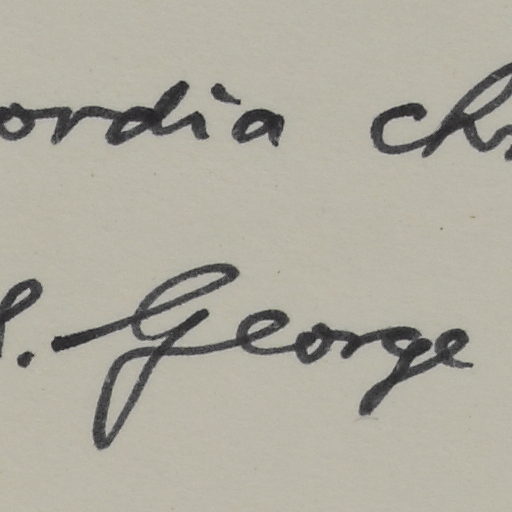 ordia ch
. George